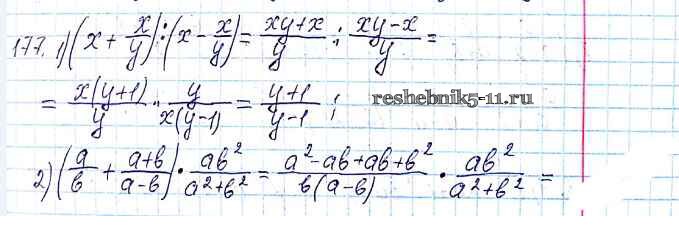 177. 1) (x + x/y) : (x - x/y) = (xy+x)/y : (xy-x)/y =
= x(y+1)/y · y/x(y-1) = (y+1)/(y-1) ; reshebnik5-11.ru
2) (a/b + (a+b)/(a-b)) · ab²/(a²+b²) = (a²-ab+ab+b²)/b(a-b) · ab²/(a²+b²) =